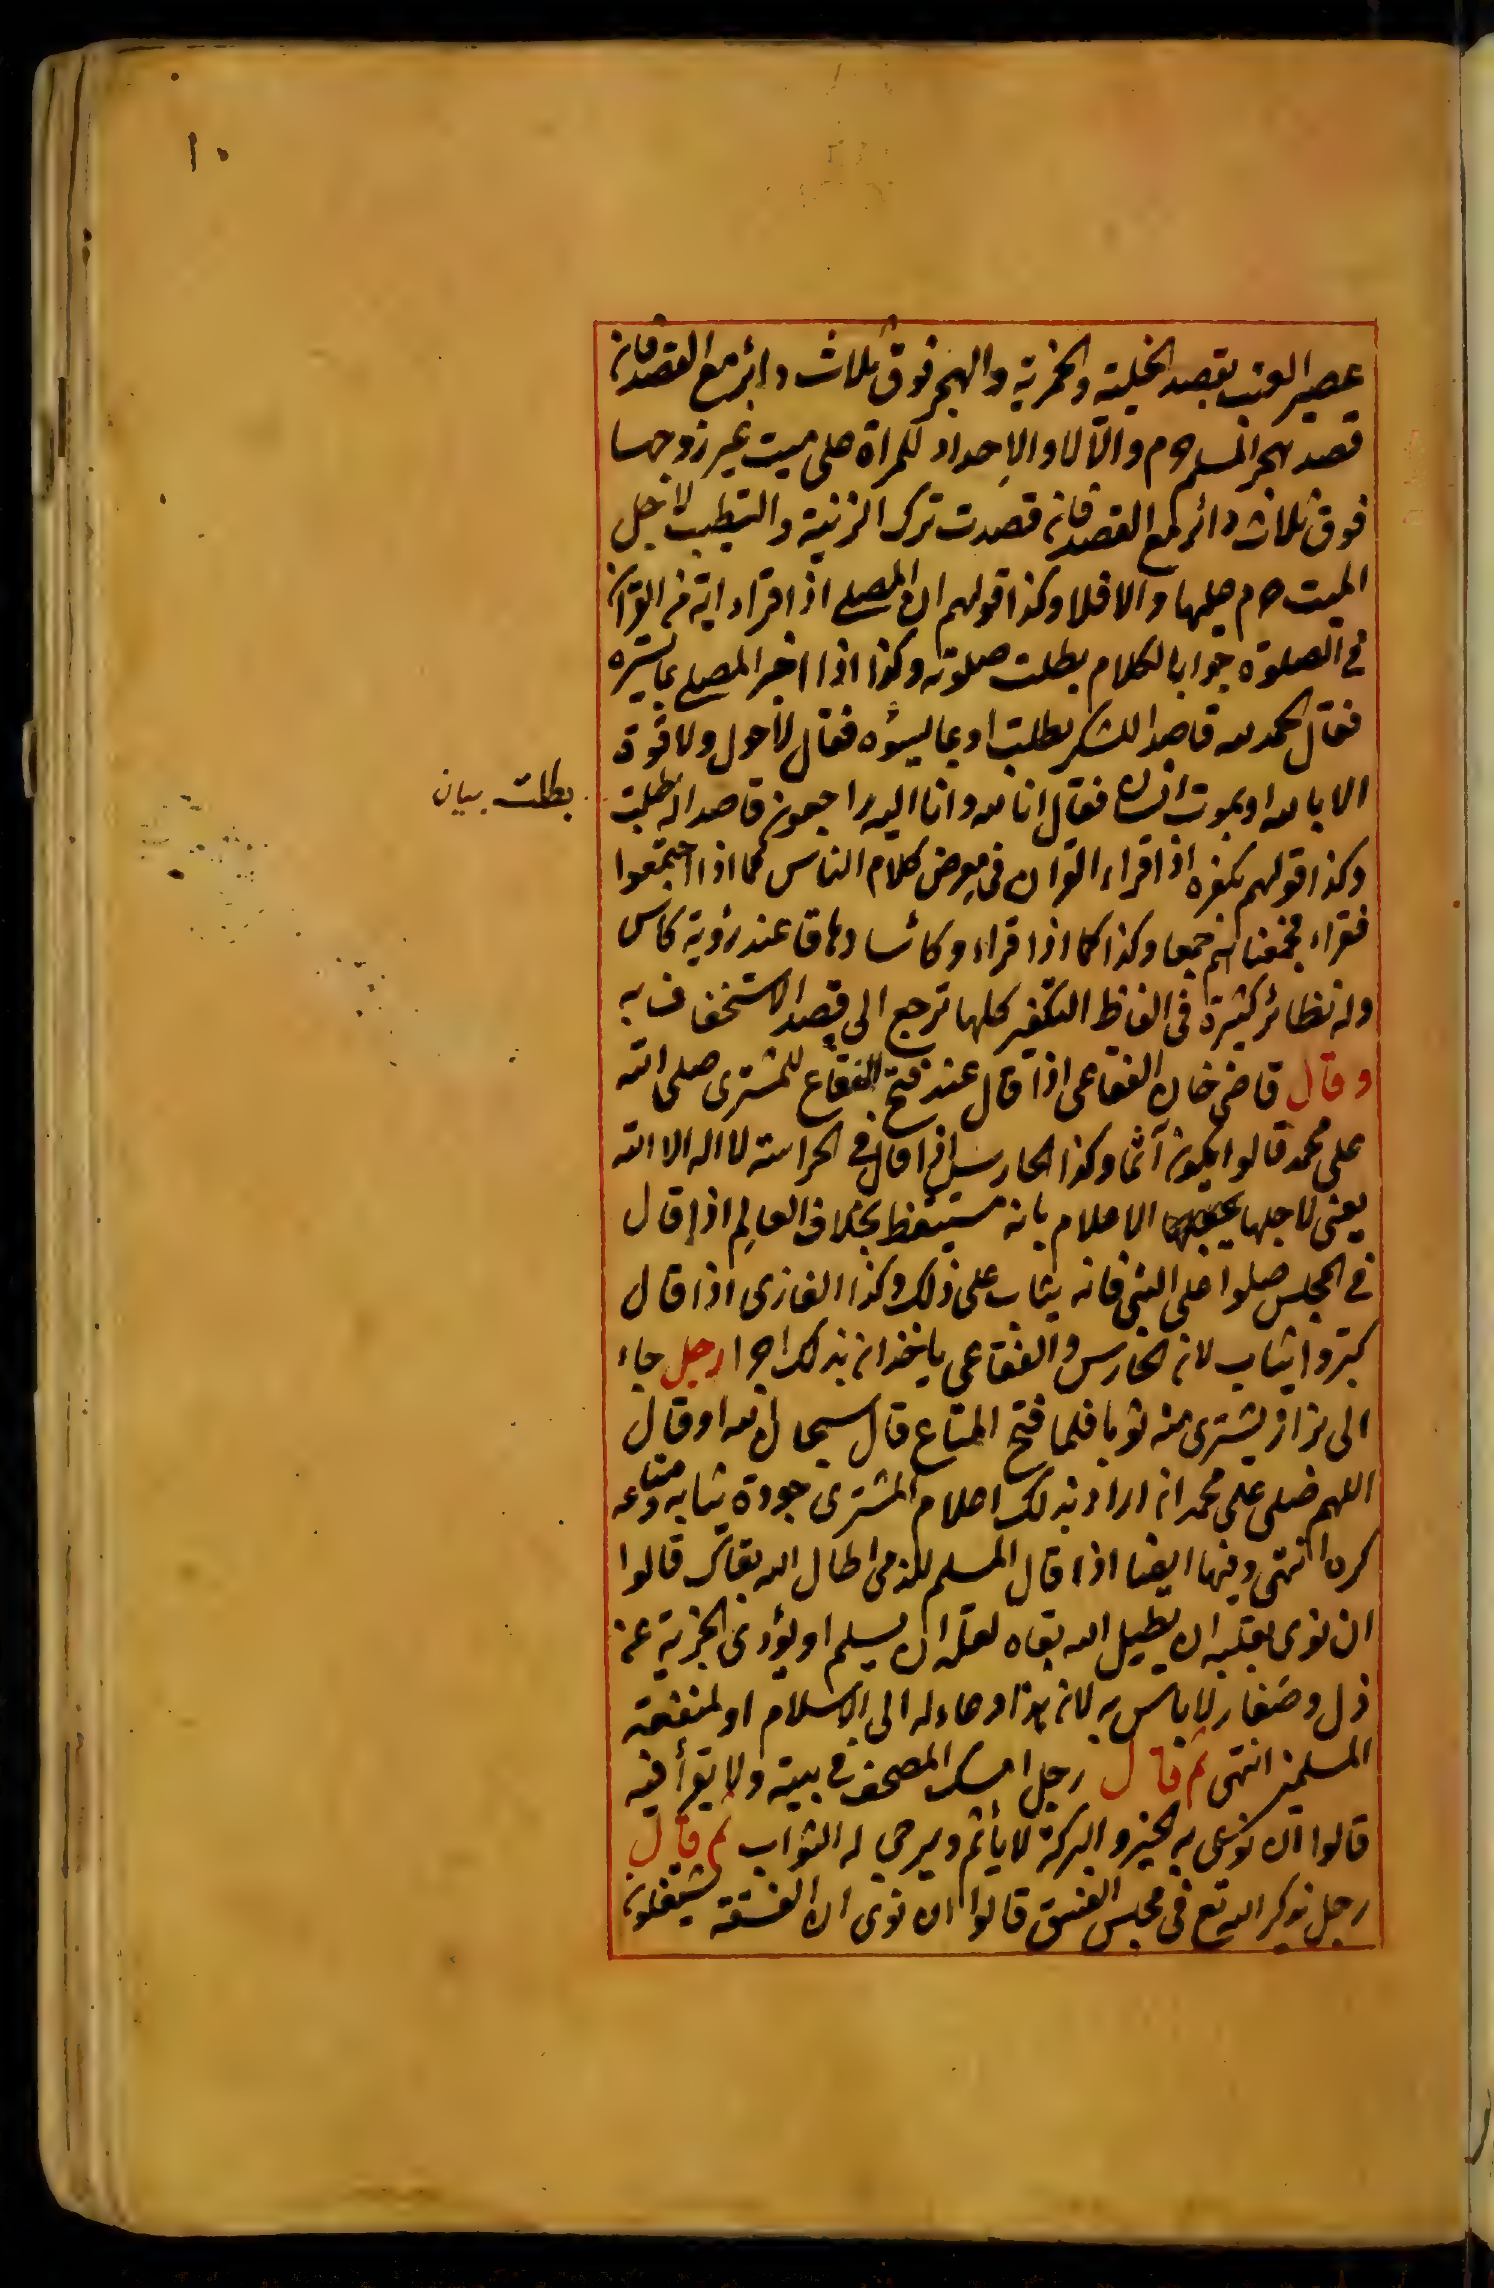 ١٠
عصير العنب بقصد الخلية والخمرية والهجر فوق ثلاث دائر مع القصد فان
قصد هجر المسلم حرم والا لا والاحداد للمراة على ميت غير زوجها
فوق ثلاث دائر مع القصد فان قصدت ترك الزينة والتطيب لاجل
الميت حرم عليها والا فلا وكذا قولهم ان المصلى اذا قراء اية من القران
فى الصلوة جوابا لكلام بطلت صلوته وكذا اذا اخبر المصلى بما يسره
فقال الحمد لله قاصدا للشكر بطلت او بما يسؤه فقال لاحول ولا قوة
الا بالله او بموت انسان فقال انا لله وانا اليه راجعون قاصدا له بطلت
بطلت بيان
وكذا قولهم بكفره اذا قراء القران فى معرض كلام الناس كما اذا اجتمعوا
فقراء فجمعناهم جمعا وكذا كما اذا قراء وكأسا دهاقا عند رؤية كاس
وله نظائر كثيرة فى الفاظ التكفير كلها ترجع الى قصد الاستخفاف به
وقال قاضى خان الفقاعى اذا قال عند فتح الفقاع للمشترى صلى الله
على محمد قالوا يكون آثما وكذا الحارس اذا قال فى الحراسة لا اله الا الله
يعنى لاجلها الاعلام بانه مستيقظ بخلاف العالم اذا قال
فى المجلس صلوا على النبى فانه يثاب على ذلك وكذا الغازى اذا قال
كبروا يثاب لان الحارس والفقاعى ياخذان بذلك اجرا رجل جاء
الى بزاز يشترى منه ثوبا فلما فتح المتاع قال سبحان الله او قال
اللهم صلى على محمد ان اراد بذلك اعلام المشترى جودة ثيابه ومتاعه
كره انتهى وفيها ايضا اذا قال المسلم للذمى اطال الله بقاك قالوا
ان نوى بقلبه ان يطيل الله بقاه لعله ان يسلم او يؤدى الجزية عن
ذل وصغار لا باس به لان هذا دعاء له الى الاسلام او لمنفعة
المسلمين انتهى ثم قال رجل امسك المصحف فى بيته ولا يقرأ فيه
قالوا ان نوى به الخير والبركة لا يأثم ويرجى له الثواب ثم قال
رجل يذكر الله تع فى مجلس الفسق قالوا ان نوى ان الفسقة يشتغلون